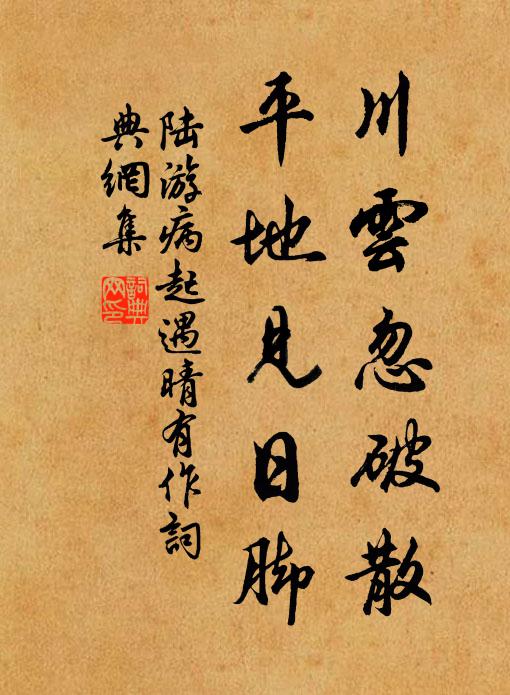 川雲忽破散
平地見日脚
陆游病起遇晴有作詞
典網集
詞典
网印